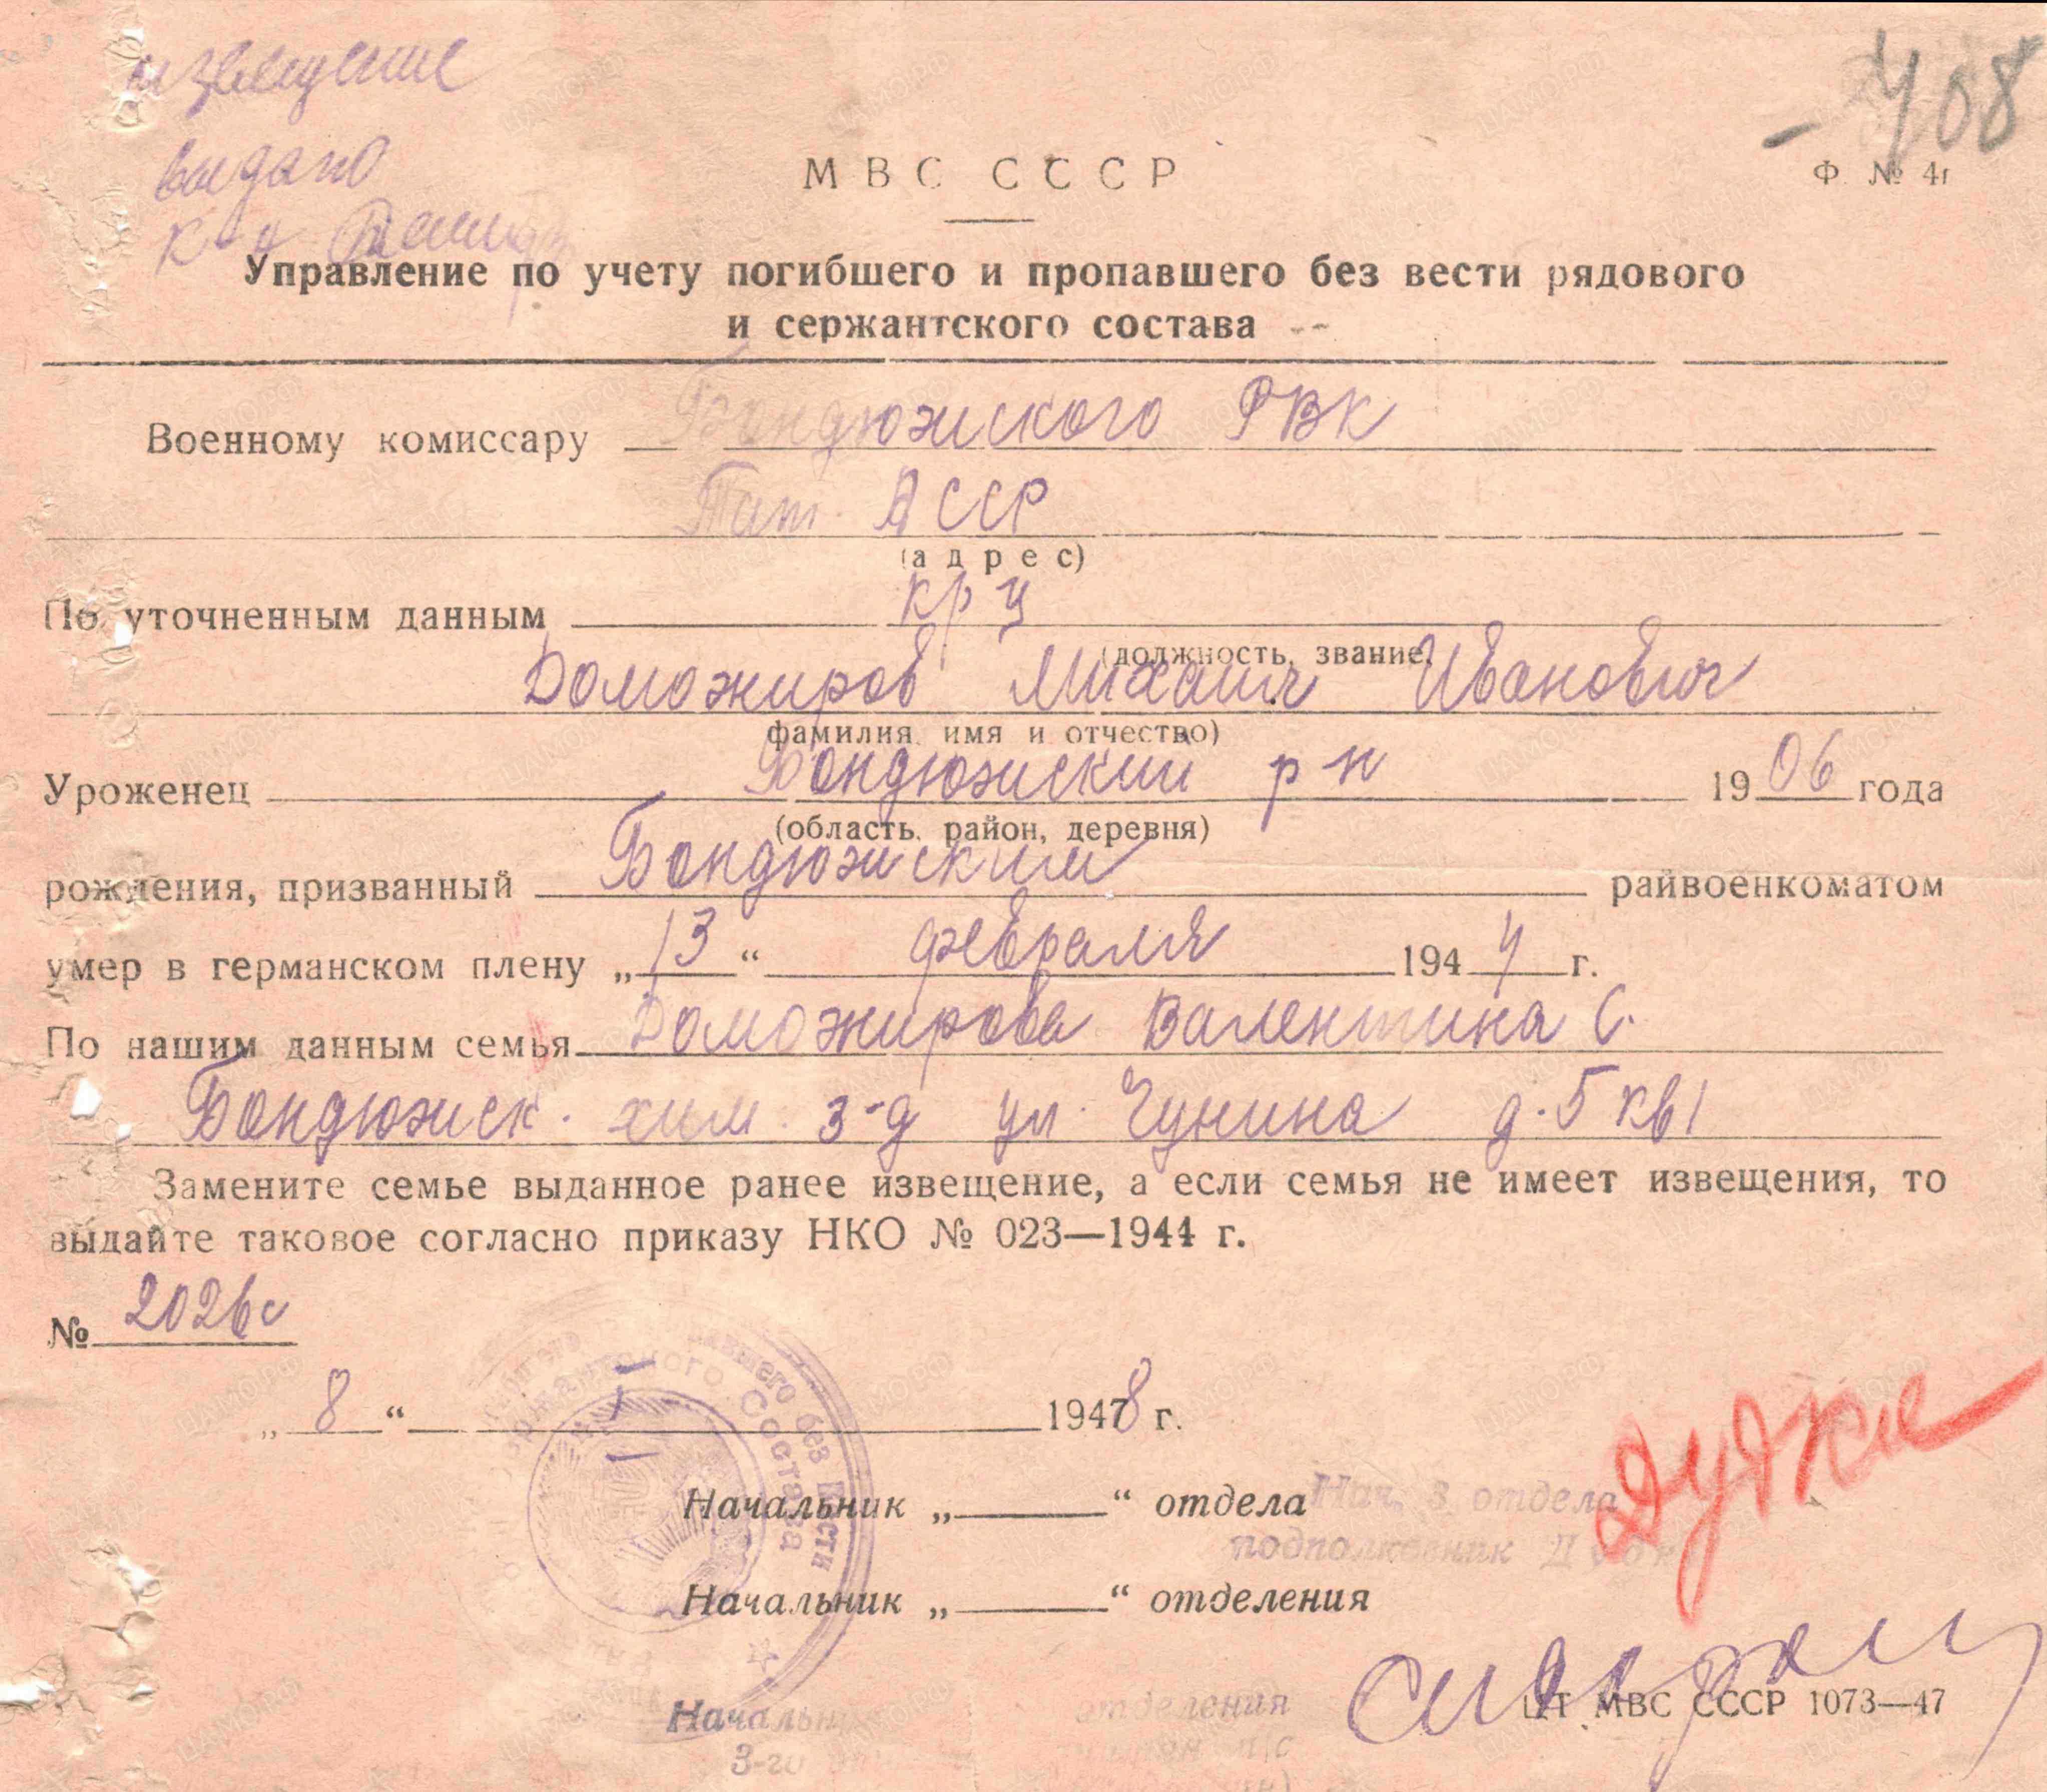 извещение
выдано
408
МВС СССР
Ф. № 4г
Управление по учету погибшего и пропавшего без вести рядового
и сержантского состава
Военному комиссару Бондюжского РВК
Тат. АССР
(адрес)
По уточненным данным кр-ц
(должность, звание,
Доможиров Михаил Иванович
фамилия, имя и отчество)
Уроженец Бондюжский р-н 1906 года
(область, район, деревня)
рождения, призванный Бондюжским райвоенкоматом
умер в германском плену „13“ февраля 1944 г.
По нашим данным семья Доможирова Валентина С.
Бондюжск. хим. з-д ул. Чунина д. 5 кв 1
Замените семье выданное ранее извещение, а если семья не имеет извещения, то
выдайте таковое согласно приказу НКО № 023—1944 г.
№ 2026с
„8“ I 1948 г.
Начальник „ “ отдела Нач. 3 отдела
подполковник
Начальник „ “ отделения
ЦТ МВС СССР 1073—47
Начальник отделения
3-го